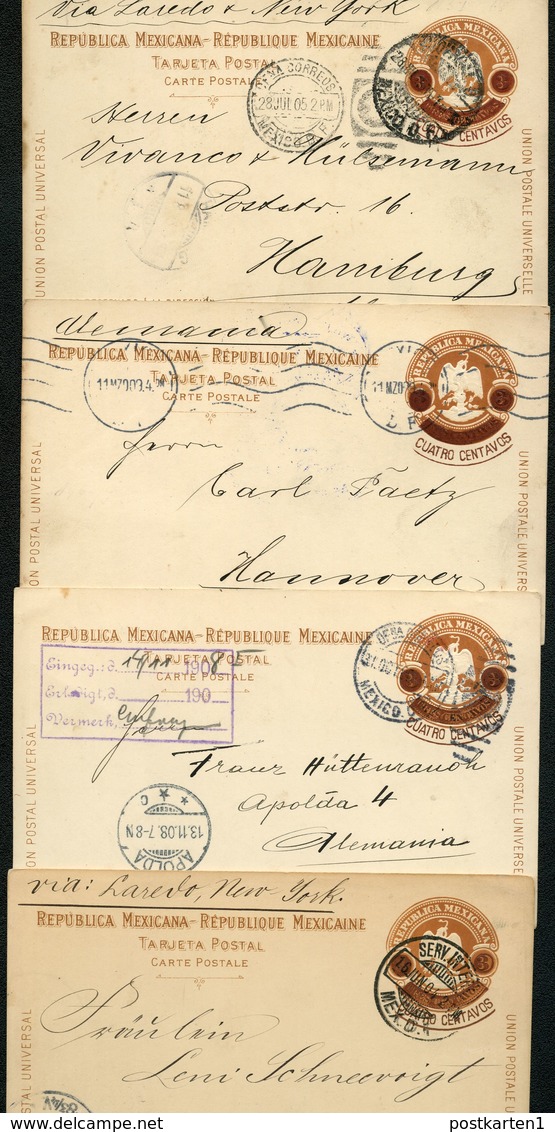 via Laredo & New York
REPÚBLICA MEXICANA-RÉPUBLIQUE MEXICAINE
TARJETA POSTAL
CARTE POSTALE
REPUBLICA MEXICANA
3
3
CUATRO CENTAVOS
OFNA CORREOS
28 JUL 05. 2 PM
MEXICO D. F.
MEXICO D.F.
Herren
Vivanco & Hülsemann
Poststr. 16.
Hamburg
UNION POSTAL UNIVERSAL
UNION POSTALE UNIVERSELLE
Alemania
REPÚBLICA MEXICANA-RÉPUBLIQUE MEXICAINE
TARJETA POSTAL
CARTE POSTALE
REPUBLICA MEXICANA
3
3
CUATRO CENTAVOS
11 MZO 903. 4. PM
11 MZO
D F
Herrn
Carl Paetz
Hannover
UNION POSTAL UNIVERSAL
UNION POSTALE UNIVERSELLE
REPÚBLICA MEXICANA-RÉPUBLIQUE MEXICAINE
TARJETA POSTAL
CARTE POSTALE
REPUBLICA MEXICANA
3
TRES CENTAVOS
CUATRO CENTAVOS
OFNA
MEXICO
Eingeg.: d. 14/11 1908
Erledigt, d. 190
Vermerk,
Herrn
Franz Hüttenrauch
Apolda 4
Alemania
APOLDA
13.11.08.7-8N
* * c
UNION POSTAL UNIVERSAL
UNION POSTALE UNIVERSELLE
via: Laredo, New-York.
REPÚBLICA MEXICANA-RÉPUBLIQUE MEXICAINE
TARJETA POSTAL
CARTE POSTALE
REPUBLICA MEXICANA
3
CUATRO CENTAVOS
SERV. INTER
MEX. D. F.
Fräulein
Leni Schneevoigt
UNION POSTAL UNIVERSAL
UNION POSTALE UNIVERSELLE
postkarten1